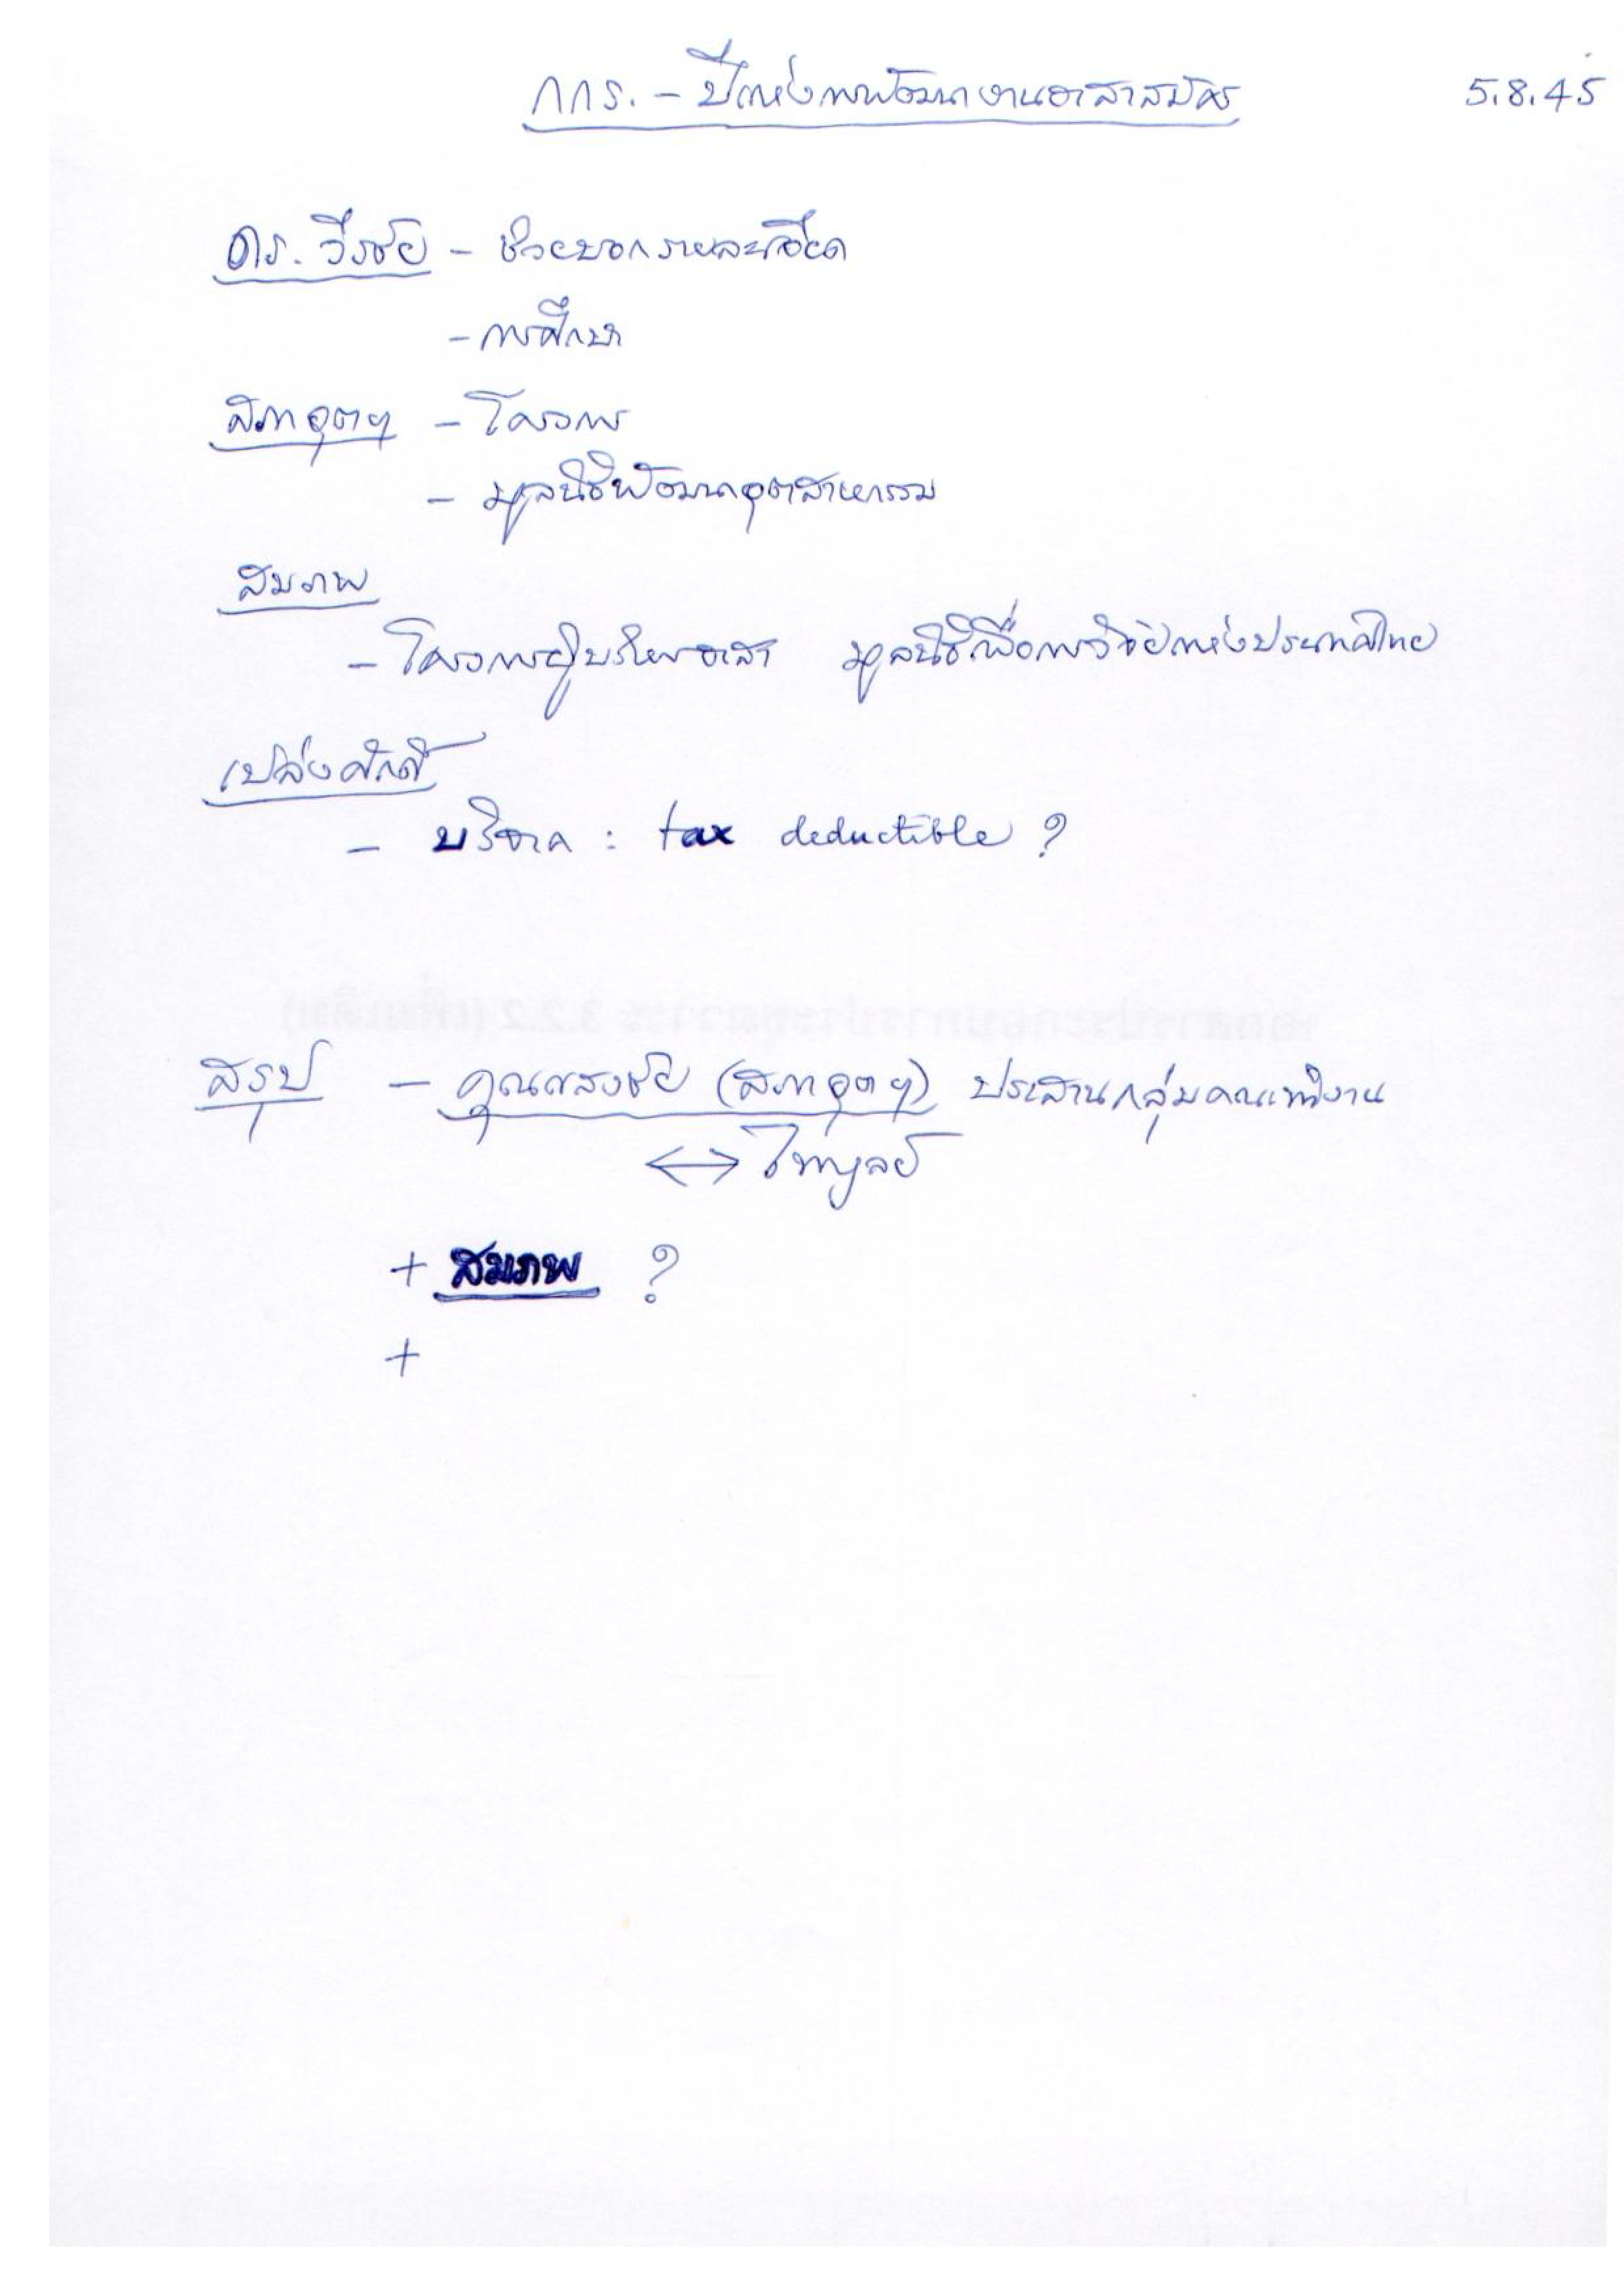 กกร. - ปีแห่งการพัฒนางานอาสาสมัคร 5.8.45
ดร. วีรชัย - ช่วยบอกรายละเอียด
- การศึกษา
สภาอุตฯ - โครงการ
- มูลนิธิพัฒนาอุตสาหกรรม
สมภพ
- โครงการผู้บริหารอาสา มูลนิธิเพื่อการวิจัยแห่งประเทศไทย
เปล่งศักดิ์
- บริจาค : tax deductible ?
เอกสารประกอบการประชุมวาระ 3.2.2 (เพิ่มเติม)
สรุป - คุณแสงชัย (สภาอุตฯ) ประสานกลุ่มคณะทำงาน
↔ ไพบูลย์
+ สมภพ ?
+